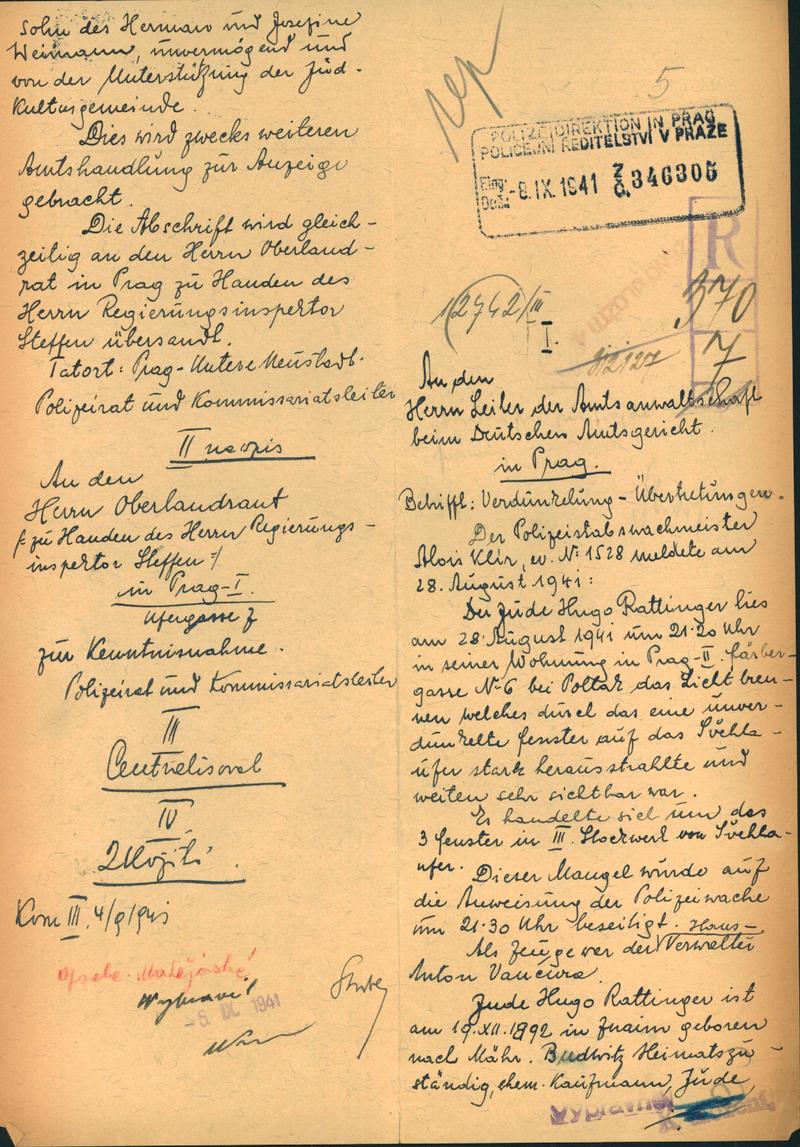 5
POLIZEIDIREKTION IN PRAG
POLICEJNÍ ŘEDITELSTVÍ V PRAZE
Eing.
Došlo
-8.IX.1941 Z Č. 346305
R
12742/III
370
I.
52127
7
An den
Herrn Leiter der Amtsanwaltschaft
beim Deutschen Amtsgericht.
in Prag.
Betrifft: Verdunkelung - Übertretungen.
Der Polizeistabswachmeister
Alois Klír, ev. Nº 1528 meldete am
28. August 1941:
Der Jude Hugo Rattinger lies
am 28. August 1941 um 21·20 Uhr
in seiner Wohnung in Prag-II. Färber-
gasse Nº 6 bei Pollak das Licht bren-
nen welches durch das eine unver-
dunkelte Fenster auf das Švehla-
ufer stark herausstrahlte und
weiten sehr sichtbar war.
Es handelte sich um das
3 Fenster in III. Stockwerk von Švehla-
ufer.
Dieser Mangel wurde auf
die Anweisung der Polizeiwache
um 21·30 Uhr beseitigt.
Als Zeuge war der Haus-
Verwalter
Anton Vančura.
Jude Hugo Rattinger ist
am 19.XII.1892 in Znaim geboren
nach Mähr. Budwitz Heimatszu-
ständig, ehem. Kaufmann, Jude,
Sohn des Herman und Josefine
Weimann, unvermögend und
von der Unterstützung der Jüd.
Kultusgemeinde.
Dies wird zwecks weiteren
Amtshandlung zur Anzeige
gebracht.
Die Abschrift wird gleich-
zeitig an den Herrn Oberland-
rat in Prag zu Handen des
Herrn Regierungsinspektor
Steffen übersandt.
Tatort: Prag-Untere Neustadt.
Polizeirat und Kommissariatsleiter
II neopis
An den
Herrn Oberlandraut
/: zu Handen des Herrn Regierungs-
inspektor Steffen :/
in Prag-I.
Ufergasse 7
zur Kenntnisnahme.
Polizeirat und Kommissariatsleiter
III
Centralisoval
IV
Založiti.
Kom III. 4/9/941
Vypraviti
-5. IX. 1941